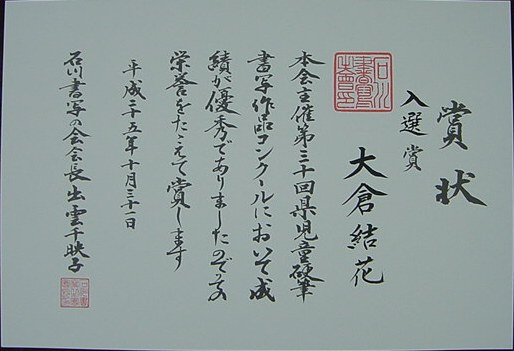 賞状
入選賞
大倉結花
本会主催第三十回県児童硬筆
書写作品コンクールにおいて成
績が優秀でありましたのでその
栄誉をたたえて賞します
平成二十五年十月三十一日
石川書写の会会長出雲千映子